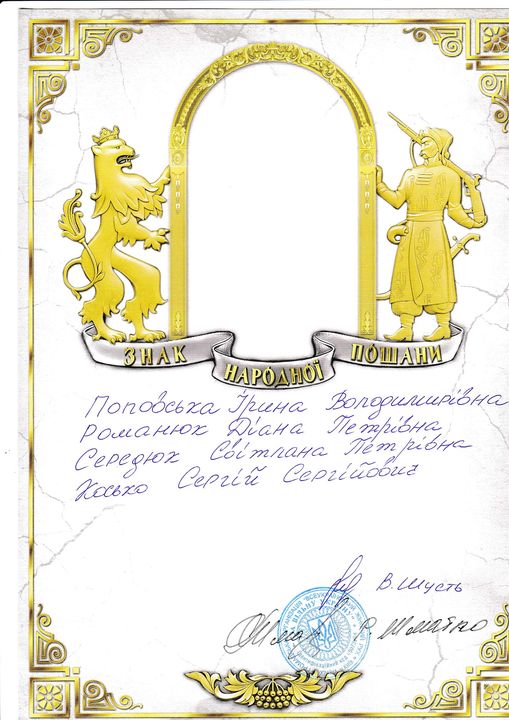 ЗНАК НАРОДНОЇ ПОШАНИ
Поповська Ірина Володимирівна
Романюк Діана Петрівна
Середюк Світлана Петрівна
Косько Сергій Сергійович
В. Шусть
Р. Шматко